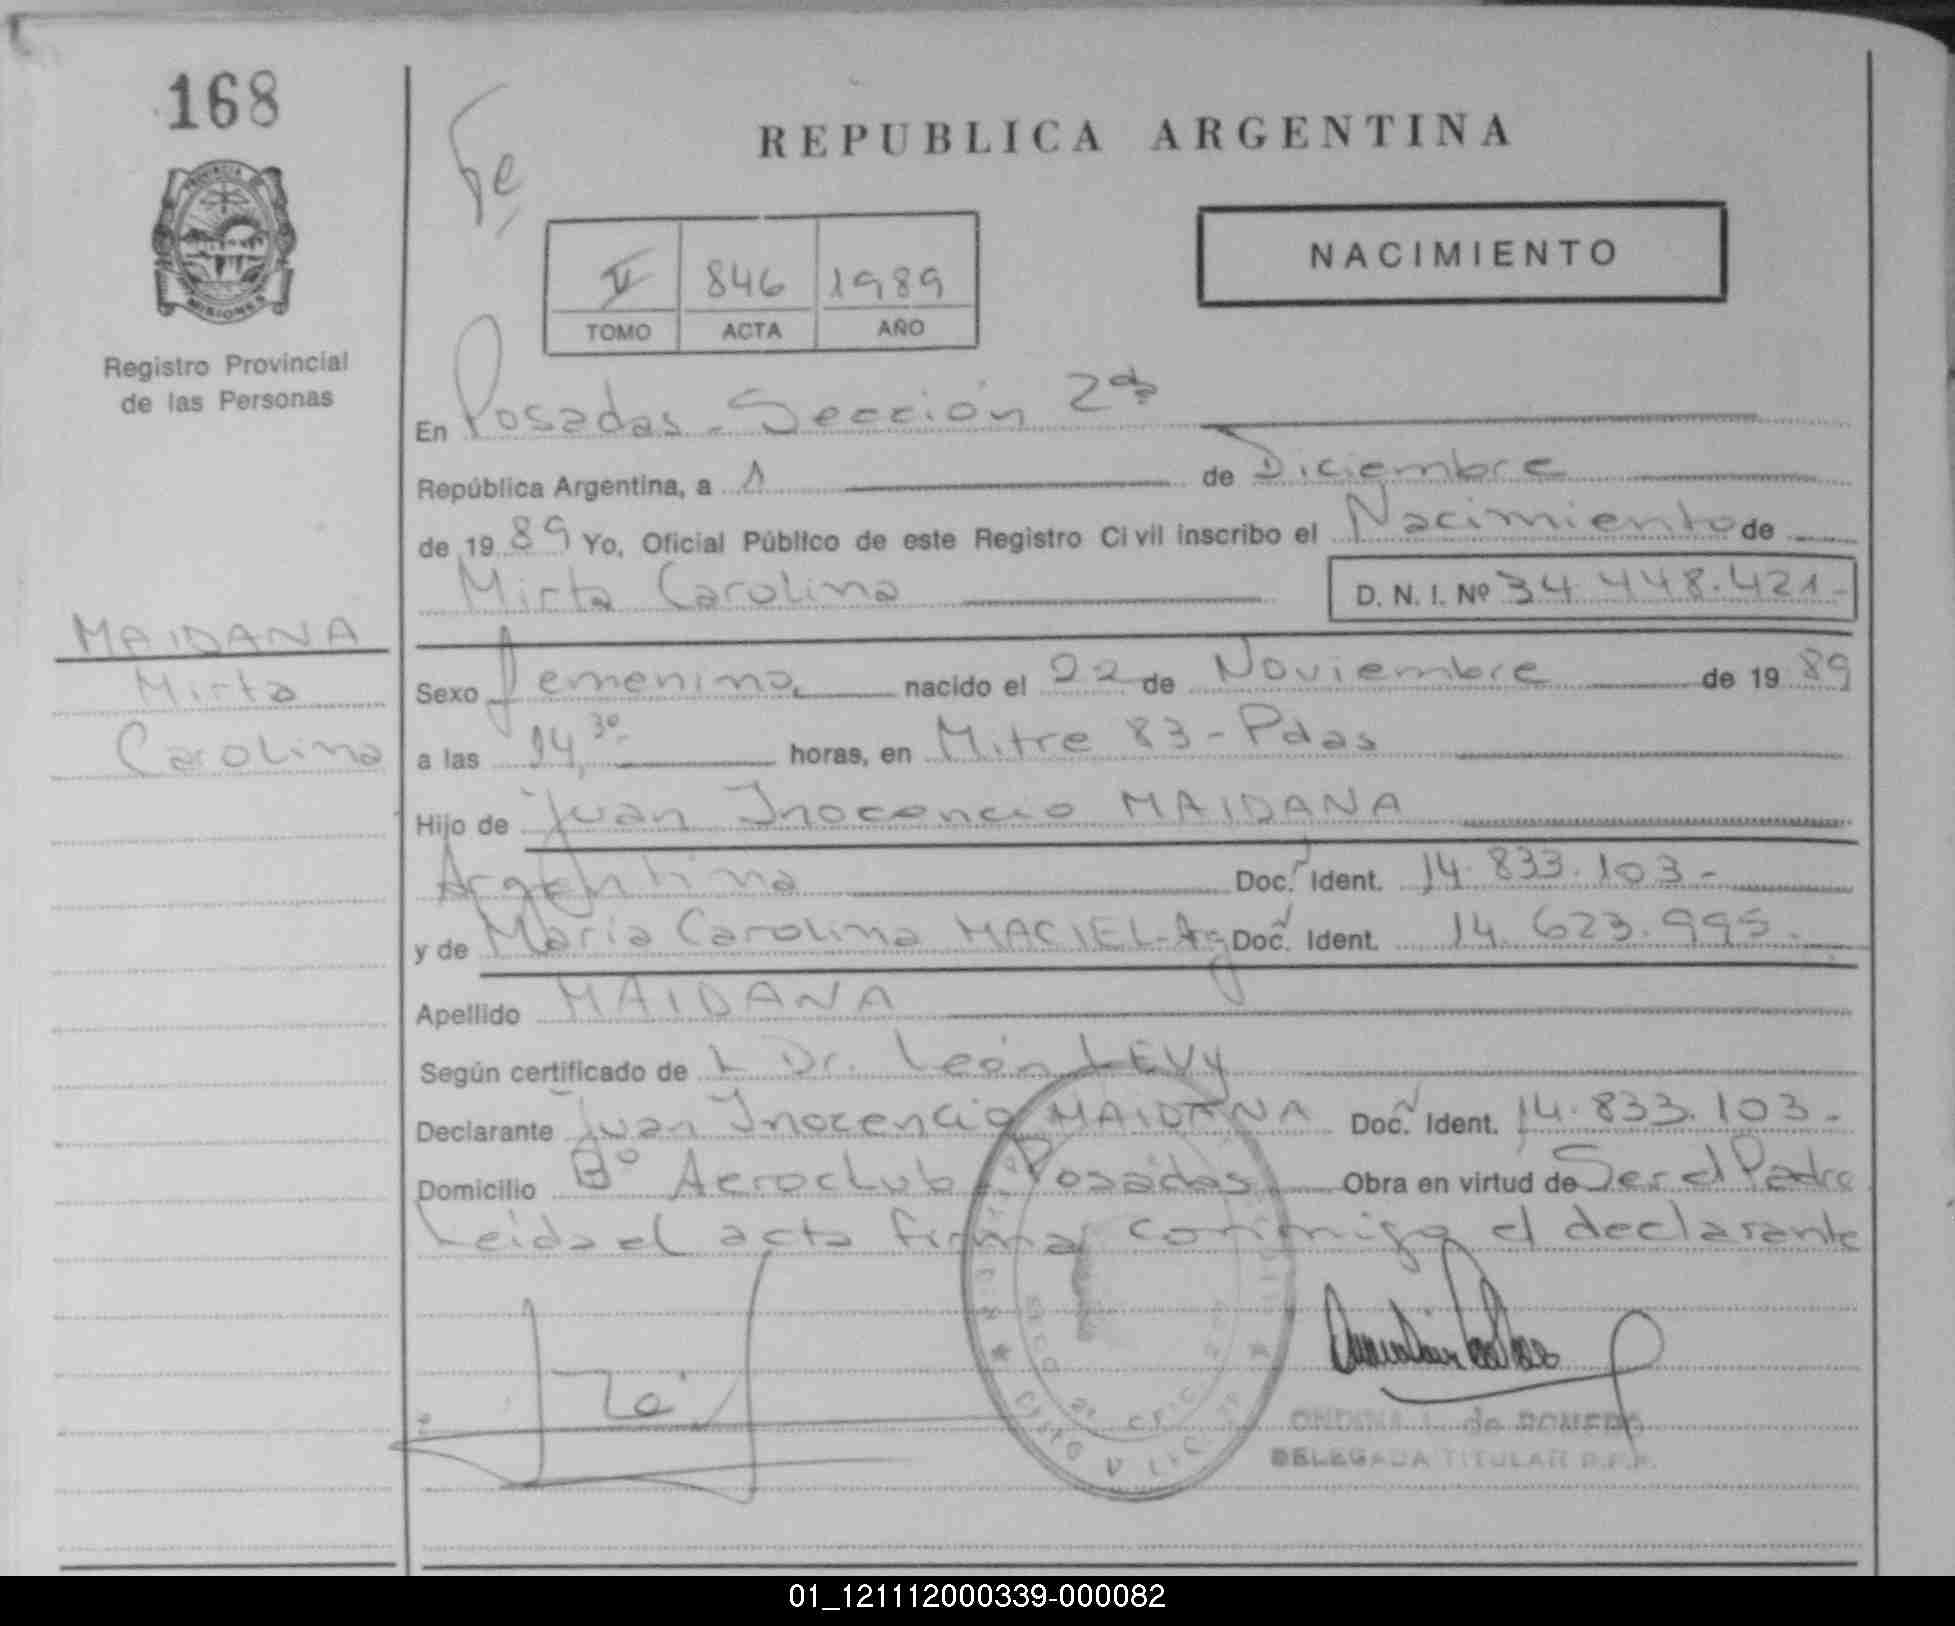 168
Fe
REPUBLICA ARGENTINA
PROVINCIA
MISIONES
Registro Provincial
de las Personas
NACIMIENTO
V 846 1989
TOMO ACTA AÑO
En Posadas - Sección 2da
República Argentina, a 1 de Diciembre
de 1989 Yo, Oficial Público de este Registro Civil inscribo el Nacimiento de
Mirta Carolina D. N. I. Nº 34.448.421-
MAIDANA
Mirta
Carolina
Sexo femenino, nacido el 22 de Noviembre de 1989
a las 14,30- horas, en Mitre 83 - Pdas
Hijo de Juan Inocencio MAIDANA
Argentina Doc. Ident. 14.833.103-
y de María Carolina MACIEL-Ag Doc. Ident. 14.623.995.
Apellido MAIDANA
Según certificado de L Dr. León LEVY
Declarante Juan Inocencio MAIDANA Doc. Ident. 14.833.103-
Domicilio Bº Aeroclub, Posadas Obra en virtud de Ser el Padre
Leida el acta firma conmigo el declarante
ONDINA L. de ROMERO
DELEGADA TITULAR R.P.P.
01_121112000339-000082